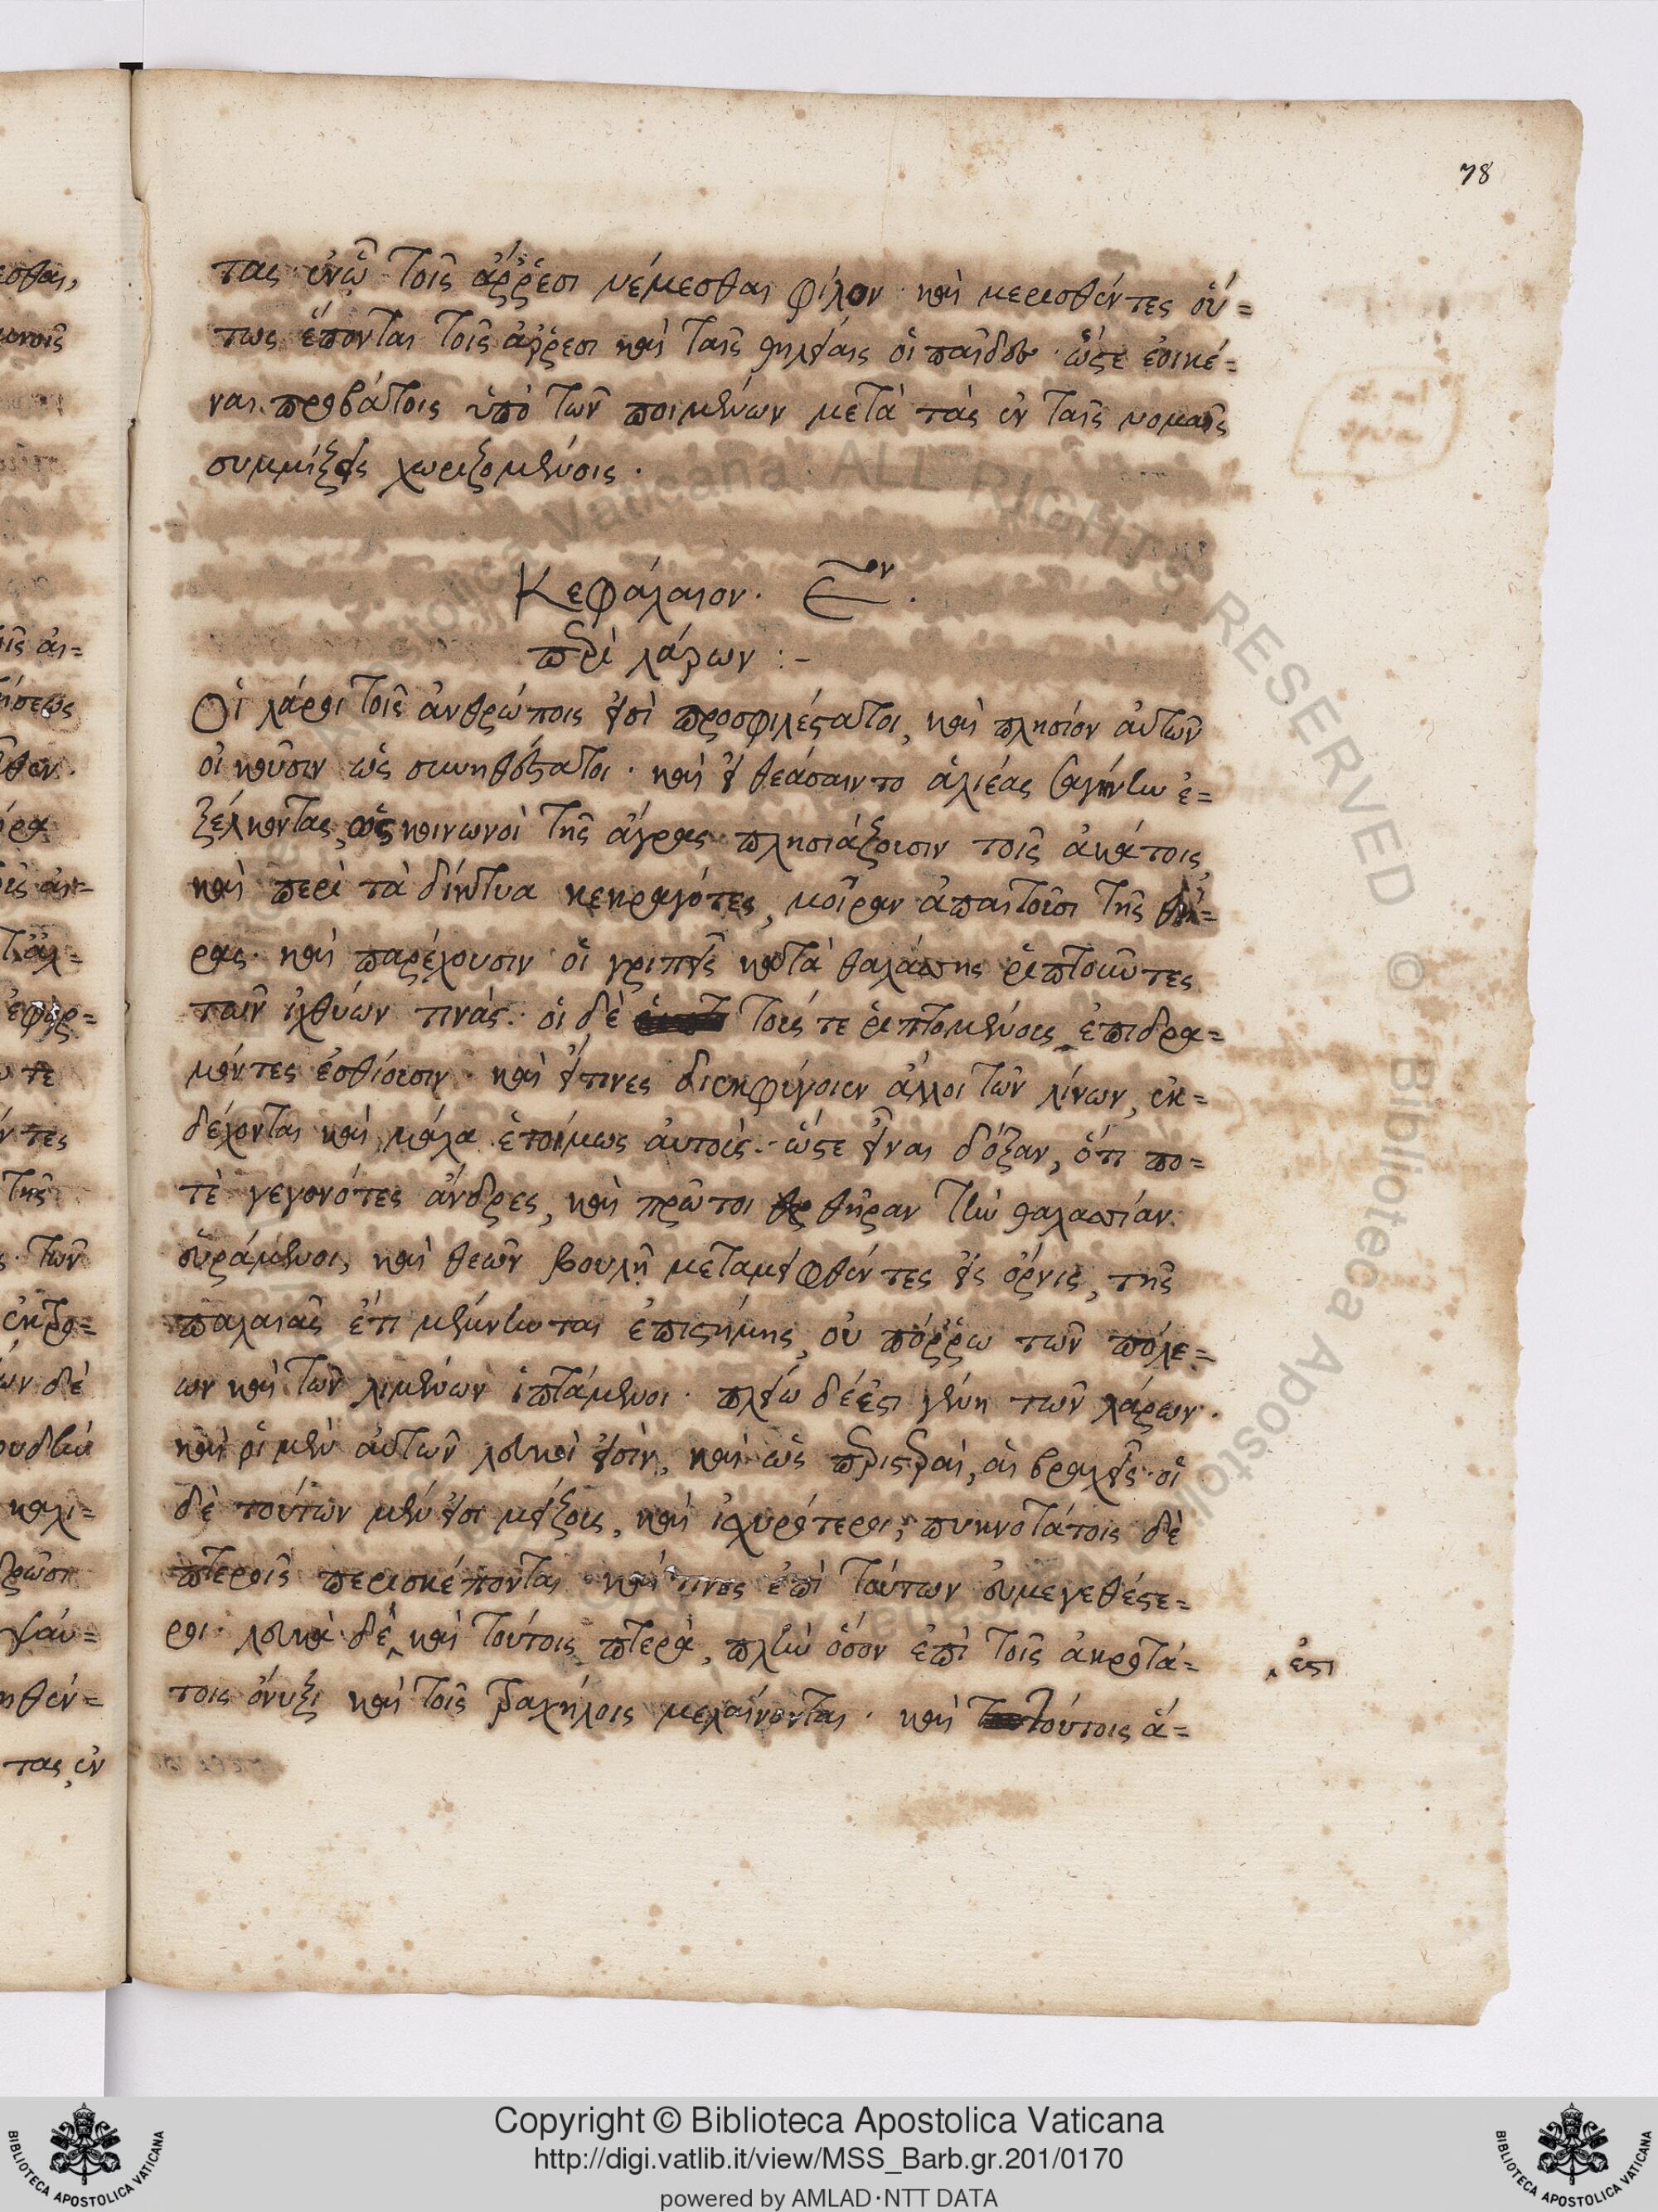 78
τας ἐν ᾧ τοῖς ἄῤῥεσι νέμεσθαι φίλον· καὶ μερισθέντες οὕ=
τως ἕπονται τοῖς ἄῤῥεσι καὶ ταῖς θηλείαις οἱ παῖδες· ὥστε ἐοικέ=
ναι προβάτοις ὑπὸ τῶν ποιμένων μετὰ τὰς ἐν ταῖς νομαῖς
συμμίξεις χωριζομένοις.
Κεφάλαιον. Ε^ον.
περὶ λάρων :-
Οἱ λάροι τοῖς ἀνθρώποις εἰσὶ προσφιλέστατοι, καὶ πλησίον αὐτῶν
οἰκοῦσιν ὡς συνηθέστατοι· καὶ εἰ θεάσαιντο ἁλιέας σαγήνην ἐ=
ξέλκοντας, ὡς κοινωνοὶ τῆς ἄγρας πλησιάζουσιν τοῖς ἀκάτοις,
καὶ περὶ τὰ δίκτυα κεκραγότες, μοῖραν ἀπαιτοῦσι τῆς θή=
ρας· καὶ παρέχουσιν οἱ γριπεῖς κατὰ θαλάσσης ῥιπτοῦντες
τῶν ἰχθύων τινάς· οἱ δὲ τοῖς τε ῥιπτομένοις ἐπιδρα=
μόντες ἐσθίουσιν· καὶ εἴ τινες διεκφύγοιεν ἄλλοι τῶν λίνων, ἐκ=
δέχονται καὶ μάλα ἑτοίμως αὐτούς· ὥστε εἶναι δόξαν, ὅτι πο=
τὲ γεγονότες ἄνδρες, καὶ πρῶτοι θρ θῆραν τὴν θαλασσίαν
εὑράμενοι, καὶ θεῶν βουλῇ μεταμειφθέντες εἰς ὄρνις, τῆς
παλαιᾶς ἔτι μέμνηνται ἐπιστήμης, οὐ πόῤῥω τῶν πόλε=
ων καὶ τῶν λιμένων ἱπτάμενοι· πλείω δέ ἐστι γένη τῶν λάρων·
καὶ οἱ μὲν αὐτῶν λευκοί εἰσίν, καὶ ὡς περιστεραὶ, αἱ βραχεῖς· οἱ
δὲ τούτων μέν εἰσι μείζους, καὶ ἰσχυρότεροι, πυκνοτάτοις δὲ
πτεροῖς περισκέπονται· καί τινες ἐπὶ τούτων εὐμεγεθέστε=
ροι· λευκὰ δὲ‸ καὶ τούτοις πτερὰ, πλὴν ὅσον ἐπὶ τοῖς ἀκροτά=
‸ἐστι
τοις ὄνυξι καὶ τοῖς τραχήλοις μελαίνονται· καὶ τούτοις ἁ=
Copyright © Biblioteca Apostolica Vaticana
http://digi.vatlib.it/view/MSS_Barb.gr.201/0170
powered by AMLAD·NTT DATA